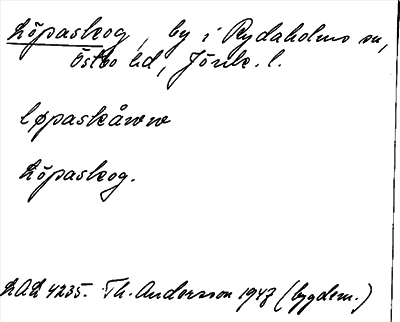 Löpaskog, by i Rydaholms sn,
Östbo hd, Jönk. l.
løpaskåww
Löpaskog.
LAL 4235. Th. Andersson 1943 (bygdem.)